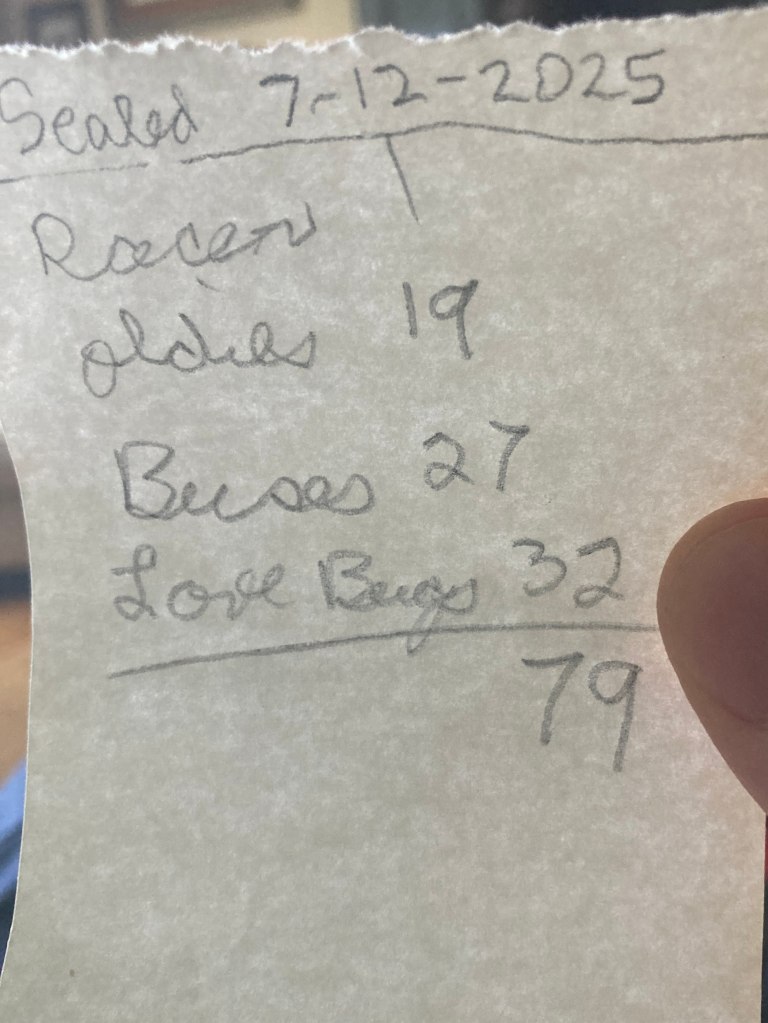 Sealed 7-12-2025
Racers 1
oldies 19
Buses 27
Love Bugs 32
79